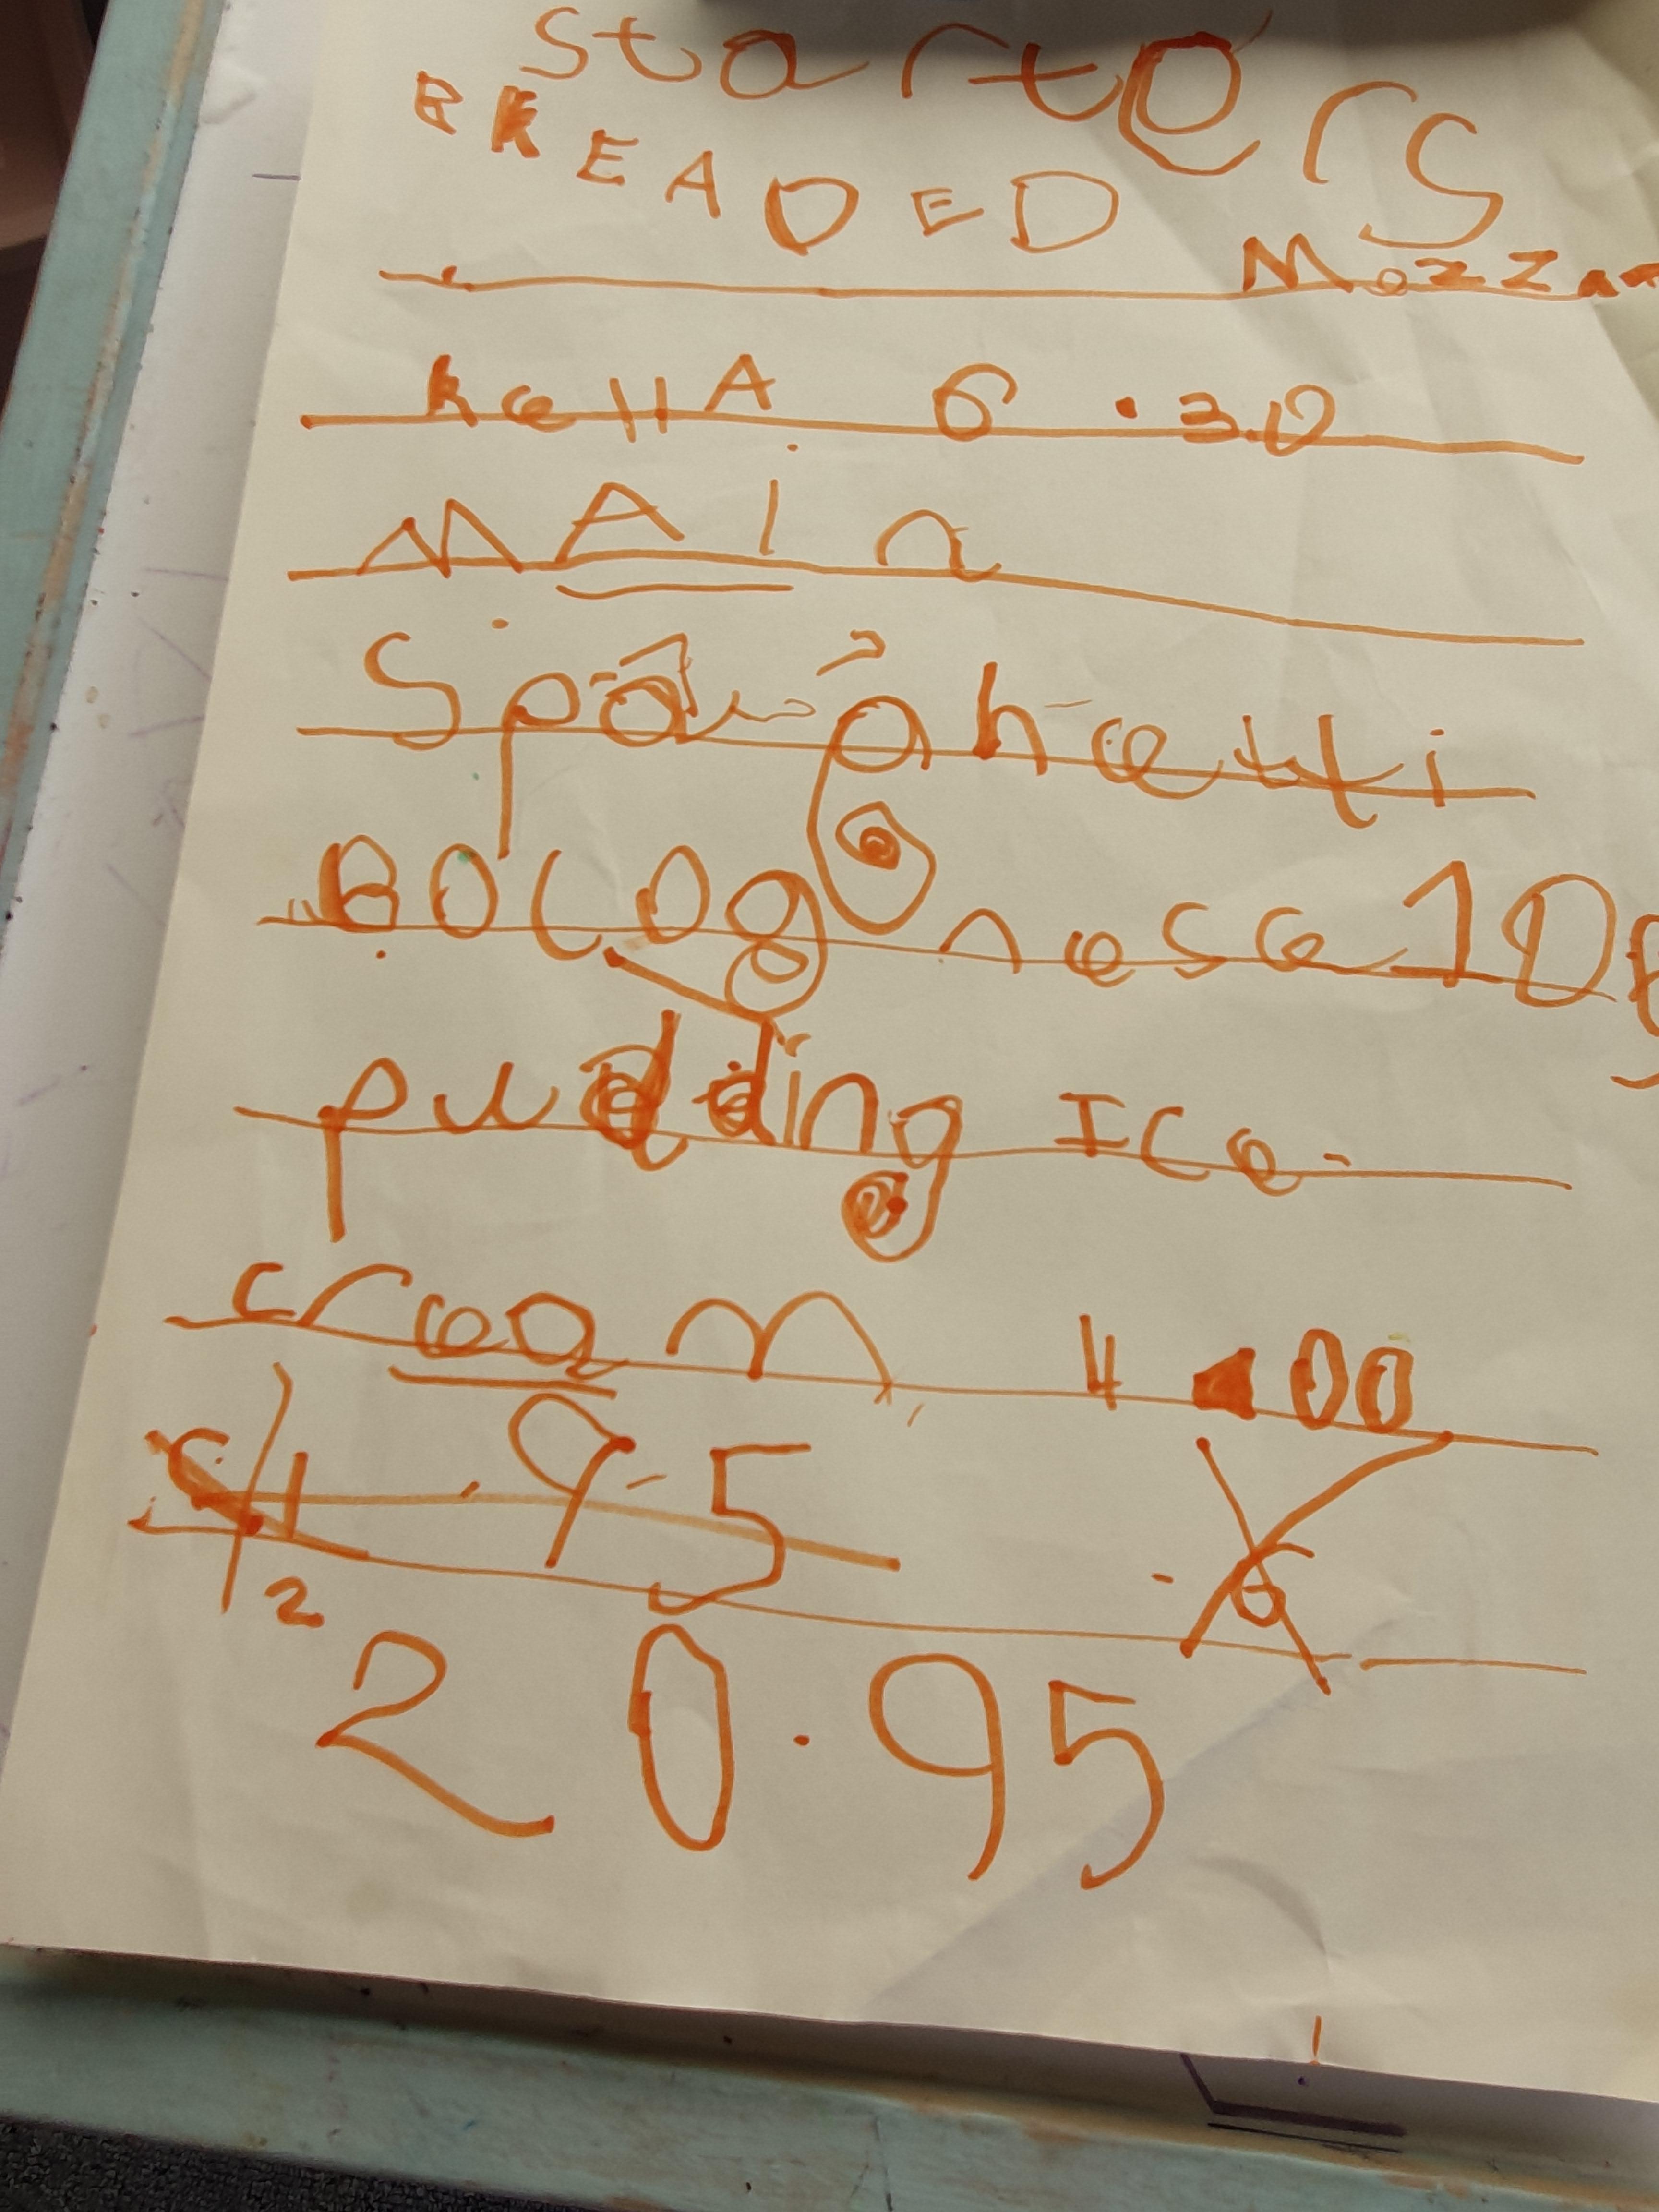 Starters
BREADED
Mozzar
rellA 6.30
MAin
Spaghetti
Bolognese 10
pudding Ice
cream 4.00
9.5
2
20.95